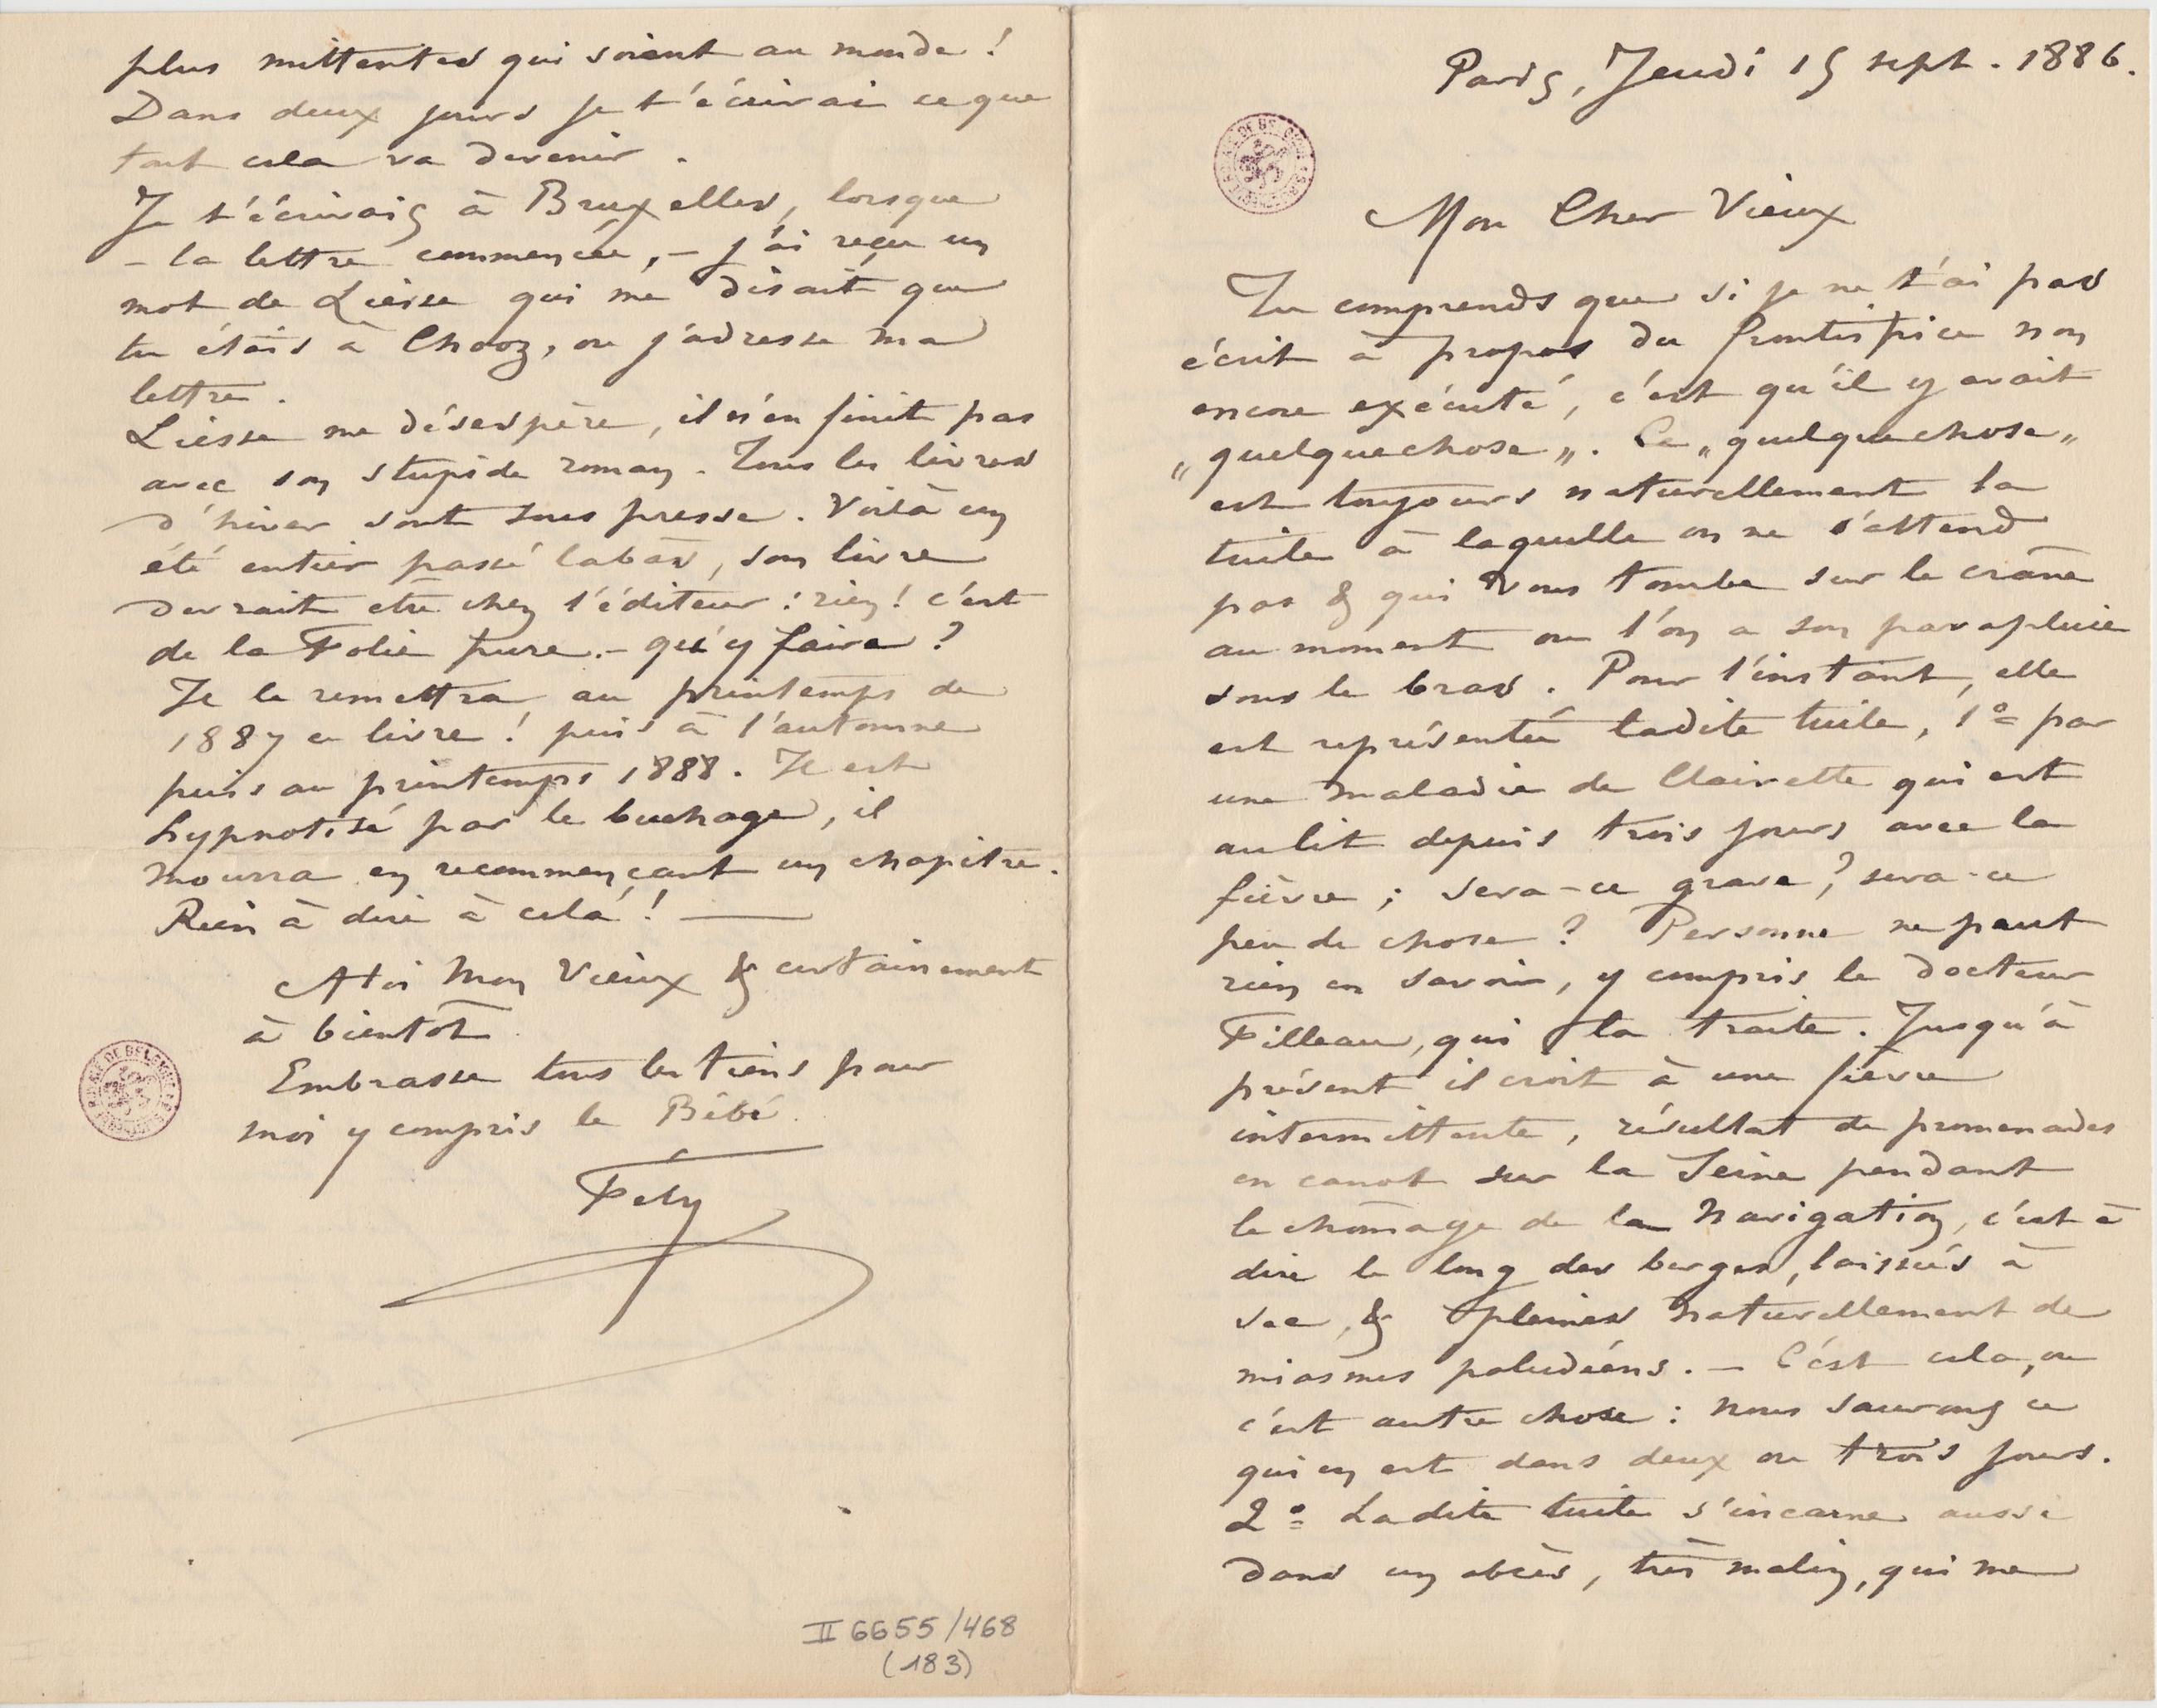 Paris, Jeudi 15 sept. 1886.
Mon Cher Vieux
Tu comprends que si je ne t'ai pas
écrit à propos du frontispice non
encore exécuté, c'est qu'il y avait
„quelquechose„. Ce „quelquechose„
est toujours naturellement la
tuile à laquelle on ne s'attend
pas & qui vous tombe sur le crâne
au moment ou l'on a son parapluie
sous le bras. Pour l'instant, elle
est représentée ladite tuile, 1º par
une maladie de Clairette qui est
au lit depuis trois jours avec la
fièvre ; sera-ce grave? sera-ce
peu de chose? Personne ne peut
rien en savoir, y compris le docteur
Filleau, qui la traite. Jusqu'à
présent il croit à une fièvre
intermittente, résultat de promenades
en canot sur la Seine pendant
le chômage de la Navigation, c'est à
dire le long des berges, laissées à
sec, & pleines naturellement de
miasmes paludéens. – C'est cela, ou
c'est autre chose : nous saurons ce
qui en est dans deux ou trois jours.
2º Ladite tuile s'incarne aussi
dans un abcès, très malin, qui me
plus mittentes qui soient au monde!
Dans deux jours je t'écrirai ce que
tout cela va devenir.
Je t'écrivais à Bruxelles, lorsque
– la lettre commencée, – j'ai reçu un
mot de Liesse qui me disait que
tu étais à Chooz, ou j'adresse ma
lettre.
Liesse me désespère, il n'en finit pas
avec son stupide roman. Tous les livres
d'hiver sont sous presse. Voilà un
été entier passé labas, son livre
devrait etre chez l'éditeur : rien! c'est
de la Folie pure. – qu'y faire?
Il le remettra au printemps de
1887 ce livre! puis à l'automne
puis au printemps 1888. Il est
hypnotisé par le buchage, il
mourra en recommençant un chapitre.
Rien à dire à cela! —
A toi Mon Vieux & certainement
à bientôt
Embrasse tous les tiens pour
moi y compris le Bébé.
Fély
II 6655/468
(183)